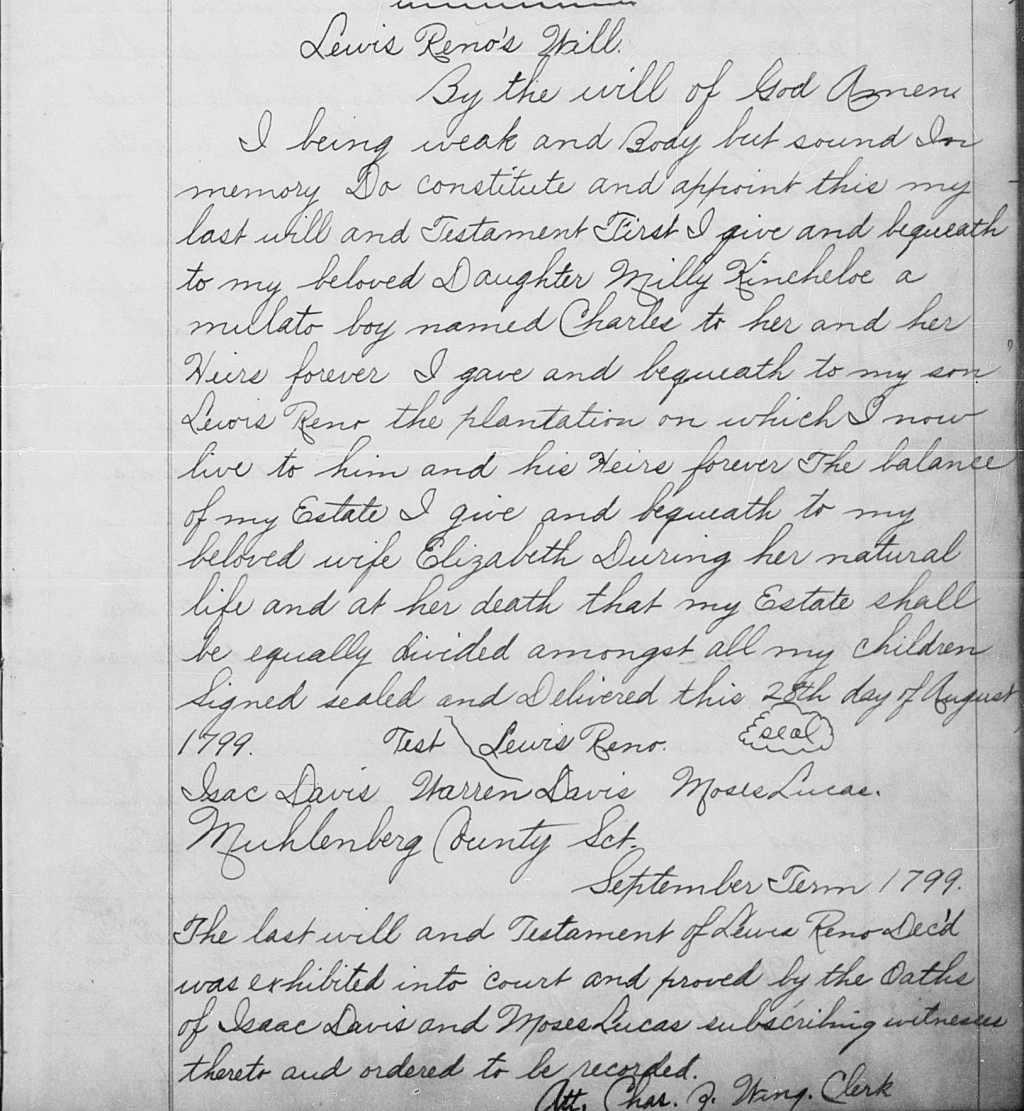 Lewis Reno's Will.
By the will of God Amen
I being weak and Body but sound In
memory Do constitute and appoint this my
last will and Testament First I give and bequeath
to my beloved Daughter Milly Kincheloe a
mullato boy named Charles to her and her
Heirs forever I gave and bequeath to my son
Lewis Reno the plantation on which I now
live to him and his Heirs forever The balance
of my Estate I give and bequeath to my
beloved wife Elizabeth During her natural
life and at her death that my Estate shall
be equally divided amongst all my children
Signed sealed and Delivered this 28th day of August
1799. Test Lewis Reno. seal
Isac Davis Warren Davis Moses Lucas.
Muhlenberg County Sct.
September Term 1799.
The last will and Testament of Lewis Reno Dec'd
was exhibited into court and proved by the Oaths
of Isaac Davis and Moses Lucas subscribing witnesses
thereto and ordered to be recorded.
Att, Chas. F. Wing. Clerk